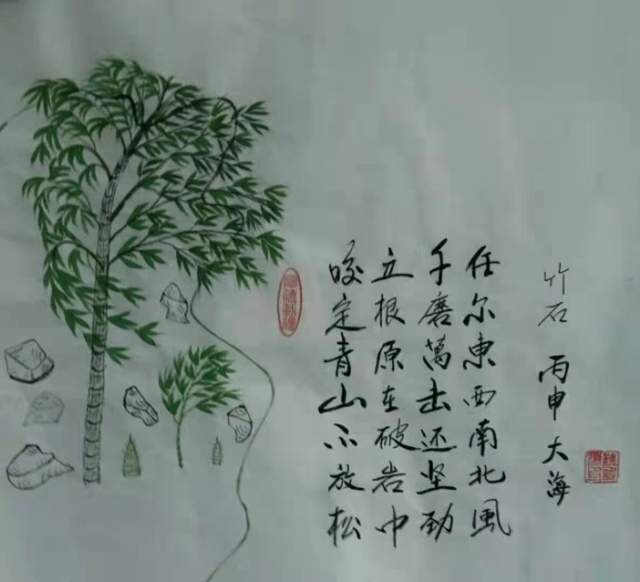 咬定青山不放松
立根原在破岩中
千磨萬击还坚劲
任尔東西南北風
竹石 丙申 大海